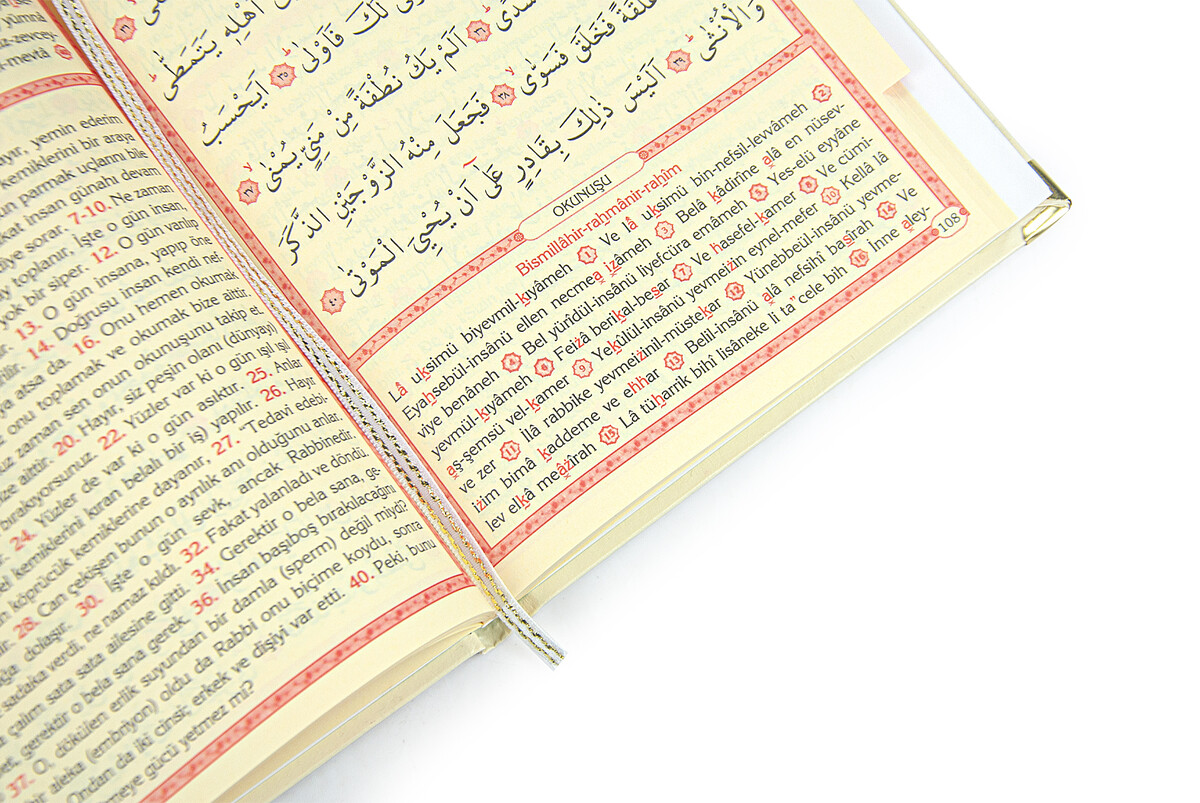 yümna
z-zevcey-
k-mevtâ
ayır, yemin ederim
kemiklerini bir araya
un parmak uçlarını bile
akat insan günahı devam
diye sorar. 7-10. Ne zaman
toplanır, İşte o gün insan,
yok bir siper. 12. O gün varılıp
13. O gün insana, yapıp öne
14. Doğrusu insan kendi nef-
ya atsa da. 16. Onu hemen okumak
onu toplamak ve okumak bize aittir.
zaman sen onun okunuşunu takip et.
ize aittir. 20. Hayır, siz peşin olanı (dünyayı)
bırakıyorsunuz. 22. Yüzler var ki o gün ışıl ışıl
24. Yüzler de var ki o gün asıktır. 25. Anlar
kemiklerini kıran belalı bir iş) yapılır. 26. Hayır
köprücük kemiklerine dayanır, 27. "Tedavi edebi-
28. Can çekişen bunun o ayrılık anı olduğunu anlar.
dolaşır. 30. İşte o gün sevk, ancak Rabbinedir.
sadaka verdi, ne namaz kıldı. 32. Fakat yalanladı ve döndü.
çalım sata sata ailesine gitti. 34. Gerektir o bela sana, ge-
gerektir o bela sana gerek. 36. İnsan başıboş bırakılacağını
37. O, dökülen erlik suyundan bir damla (sperm) değil miydi?
bir aleka (embriyon) oldu da Rabbi onu biçime koydu, sonra
Ondan da iki cinsi; erkek ve dişiyi var etti. 40. Peki, bunu
meye gücü yetmez mi?
اَهْلِه۪ يَتَمَطّٰىۜ
لَكَ فَاَوْلٰىۜ ﴿٣٥﴾ اَيَحْسَبُ
سُدًىۜ ﴿٣٦﴾ اَلَمْ يَكُ نُطْفَةً مِنْ مَنِيٍّ يُمْنٰىۙ ﴿٣٧﴾
عَلَقَةً فَخَلَقَ فَسَوّٰىۙ ﴿٣٨﴾ فَجَعَلَ مِنْهُ الزَّوْجَيْنِ الذَّكَرَ
وَالْاُنْثٰىۜ ﴿٣٩﴾ اَلَيْسَ ذٰلِكَ بِقَادِرٍ عَلٰٓى اَنْ يُحْيِيَ الْمَوْتٰى ﴿٤٠﴾
OKUNUŞU
Bismillâhir-rahmânir-rahîm
Lâ uksimü biyevmil-kıyâmeh 1 Ve lâ uksimü bin-nefsil-levvâmeh 2
Eyahsebül-insânü ellen necmea izâmeh 3 Belâ kâdirîne alâ en nüsev-
viye benâneh 4 Bel yürîdül-insânü liyefcüra emâmeh 5 Yes-elü eyyâne
yevmül-kıyâmeh 6 Feizâ berikal-besar 7 Ve hasefel-kamer 8 Ve cümi-
aş-şemsü vel-kamer 9 Yekûlül-insânü yevmeizin eynel-mefer 10 Kellâ lâ
ve zer 11 İlâ rabbike yevmeizinil-müstekar 12 Yünebbeül-insânü yevme-
izim bimâ kaddeme ve ehhar 13 Belil-insânü alâ nefsihî basîrah 14 Ve
lev elkâ meâzîrah 15 Lâ tüharrik bihî lisâneke li ta"cele bih 16 İnne aley-
108